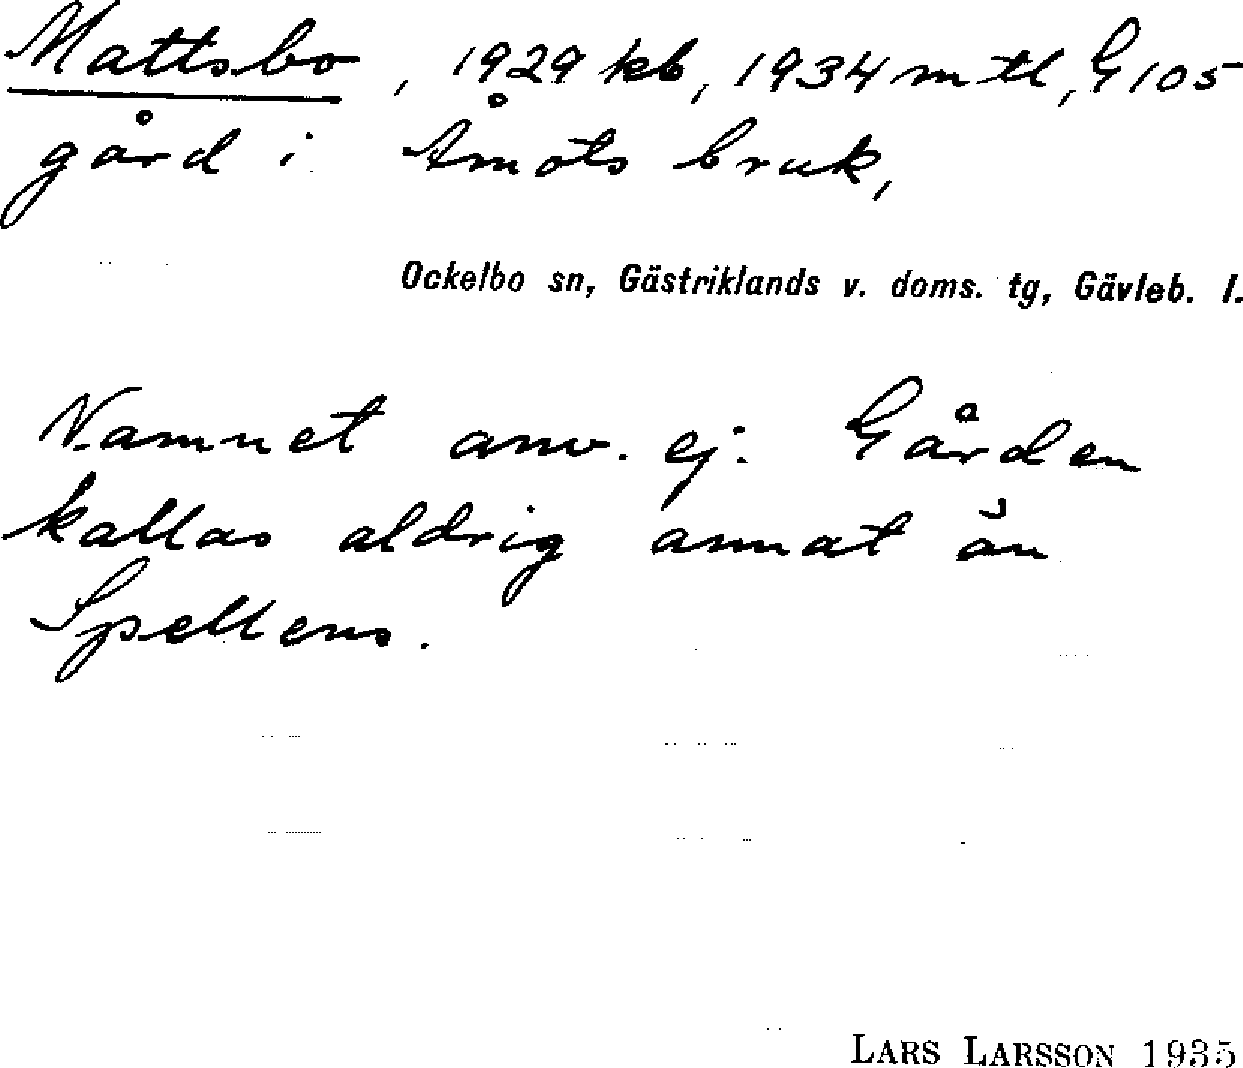 Mattsbo, 1929 kb, 1934 mtl, G 105
gård i Åmots bruk,
Ockelbo sn, Gästriklands v. doms. tg, Gävleb. l.
Namnet anv. ej. Gården
kallas aldrig annat än
Spellens.
LARS LARSSON 1935